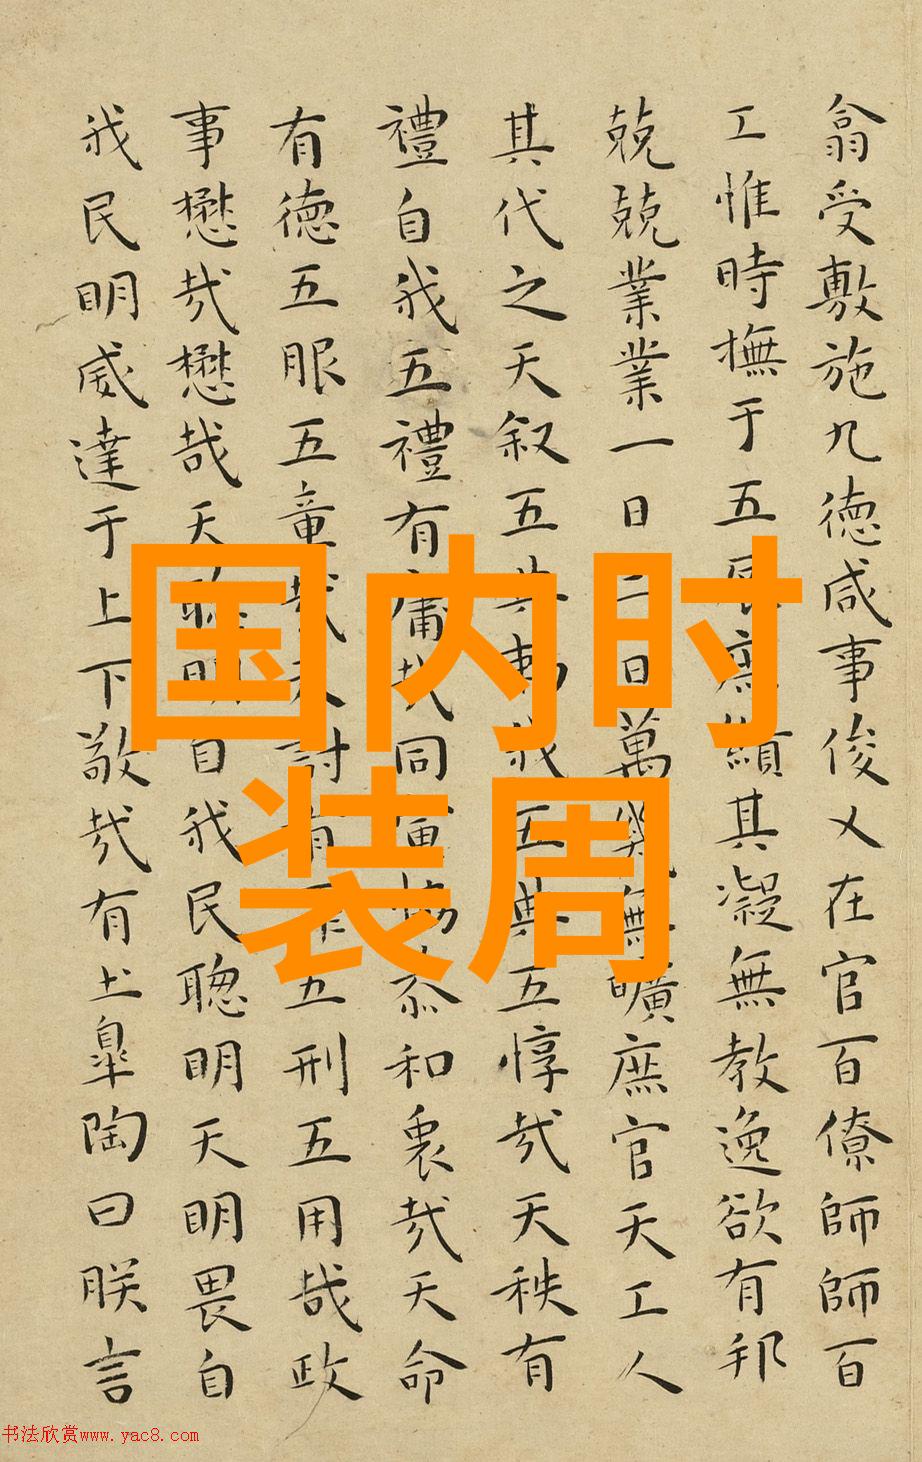 翕受敷施九徳咸事俊乂在官百僚師師百
工惟時撫于五辰庶績其凝無教逸欲有邦
兢兢業業一日二日萬幾無曠庶官天工人
其代之天叙五典勑我五典五惇哉天秩有
禮自我五禮有庸哉同寅協恭和衷哉天命
有徳五服五章哉天討有罪五刑五用哉政
事懋哉懋哉天聡明自我民聡明天明畏自
我民明威達于上下敬哉有土皐陶曰朕言
国内时
装周
书法欣赏www.yac8.com